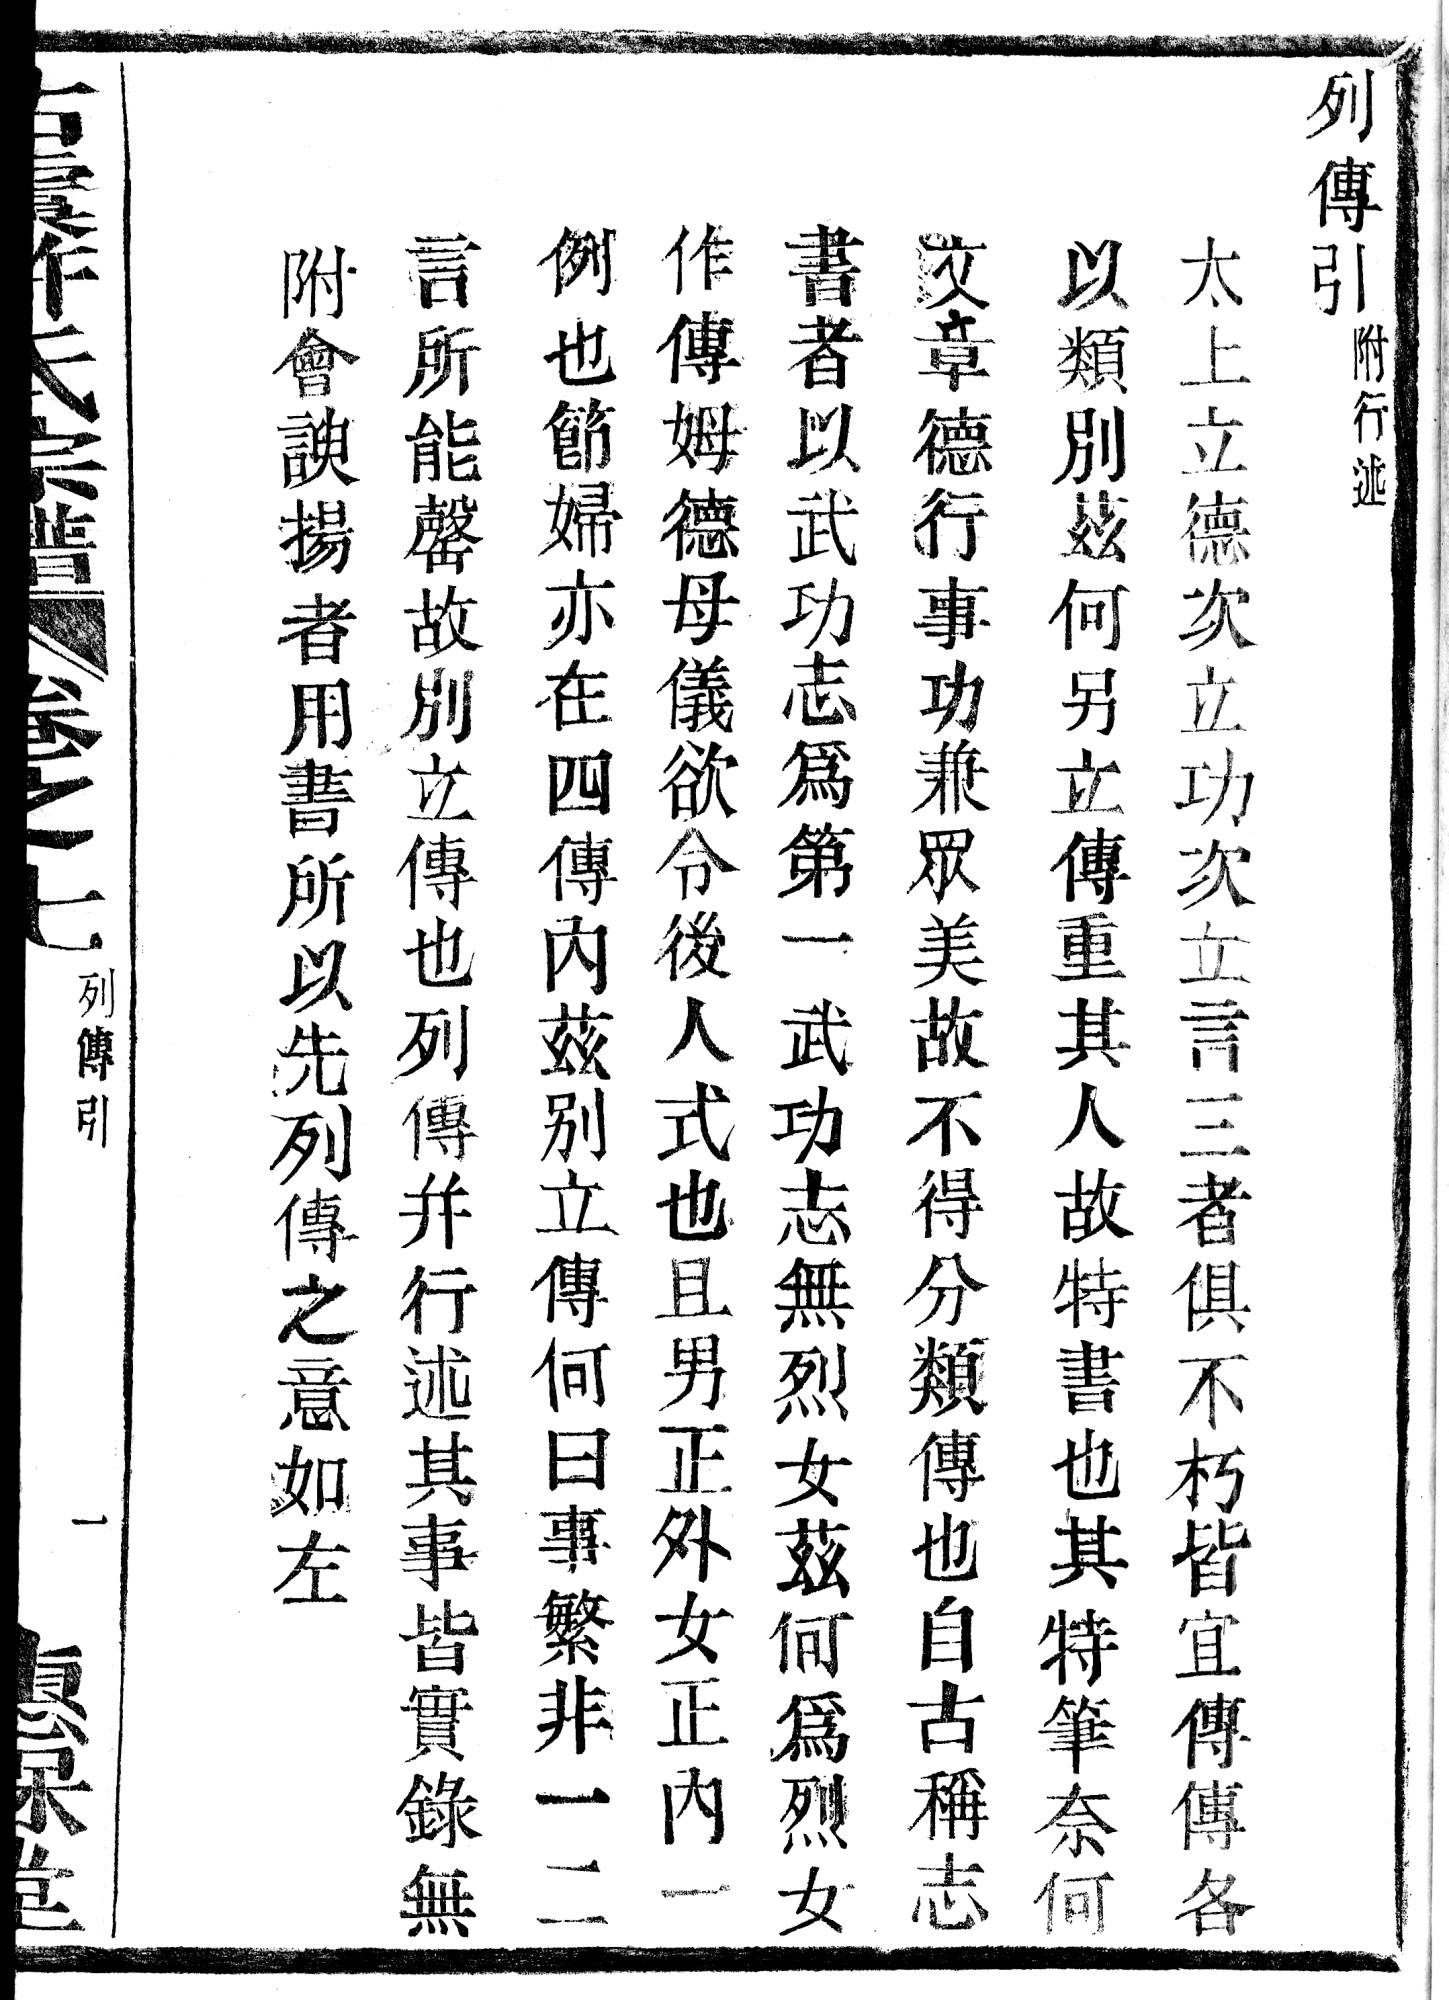 列傳引附行述
太上立德次立功次立言三者俱不朽皆宜傳傳各
以類別茲何另立傳重其人故特書也其特筆奈何
文章德行事功兼眾美故不得分類傳也自古稱志
書者以武功志爲第一武功志無烈女茲何爲烈女
作傳姆德母儀欲令後人式也且男正外女正內一
例也節婦亦在四傳內茲别立傳何曰事繁非一二
言所能罄故別立傳也列傳幷行述其事皆實錄無
附會諛揚者用書所以先列傳之意如左
氏宗譜 卷之七 列傳引 一 惠保堂